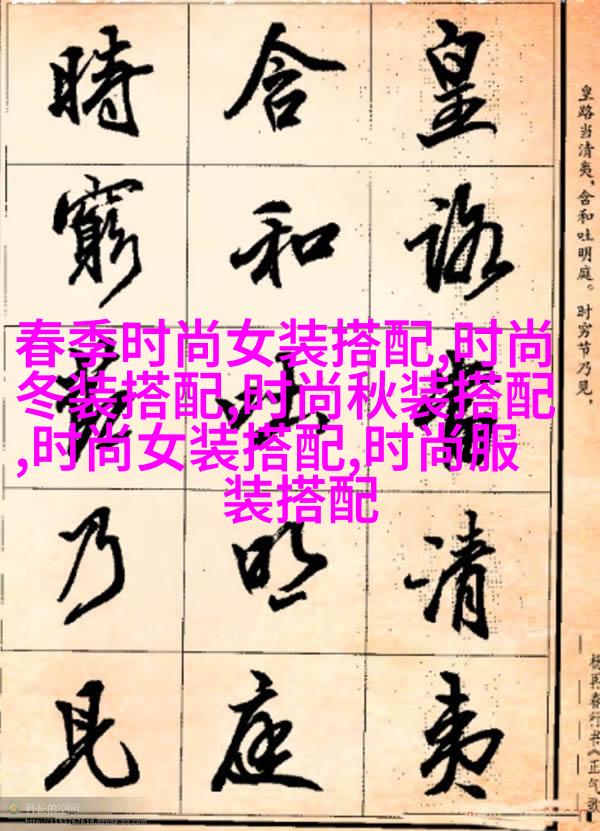 春季时尚女装搭配,时尚
冬装搭配,时尚秋装搭配
,时尚女装搭配,时尚服
装搭配
皇路当清夷,含和吐明庭。时穷节乃见,
杨再春行书《正气歌
皇路清夷
含和明庭
時窮乃見
科长的空间